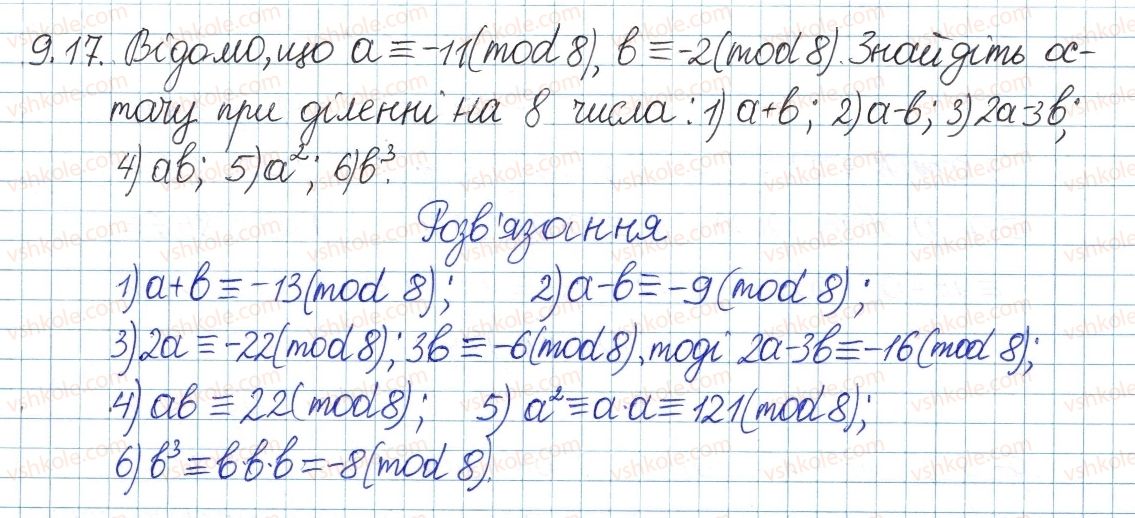 9.17. Відомо, що a ≡ -11(mod 8), b ≡ -2(mod 8). Знайдіть ос-
тачу при діленні на 8 числа: 1) a+b; 2) a-b; 3) 2a-3b;
4) ab; 5) a²; 6) b³.
Розв'язання
1) a+b ≡ -13(mod 8); 2) a-b ≡ -9(mod 8);
3) 2a ≡ -22(mod 8); 3b ≡ -6(mod 8), тоді 2a-3b ≡ -16(mod 8);
4) ab ≡ 22(mod 8); 5) a² ≡ a·a ≡ 121(mod 8);
6) b³ ≡ b·b·b = -8(mod 8).